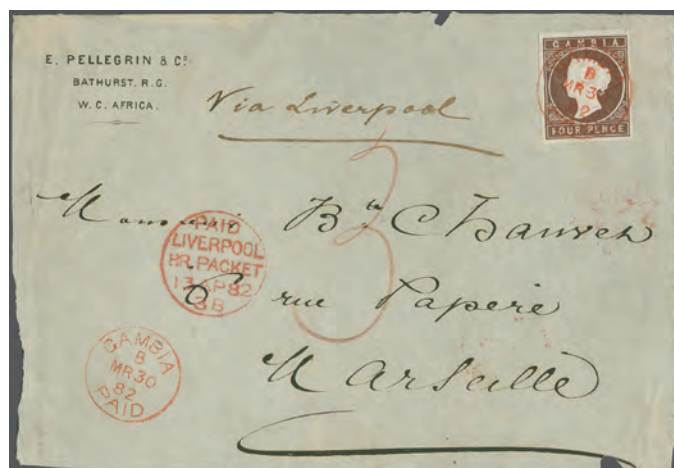 E. PELLEGRIN & Cº
BATHURST. R.G.
W.C. AFRICA.
Via Liverpool
GAMBIA
B
MR 30
FOUR PENCE
3
Monsieur Bin Chauvet
PAID
LIVERPOOL
BR. PACKET
13 AP 82
3B
6 rue Papere
Marseille
GAMBIA
B
MR 30
82
PAID